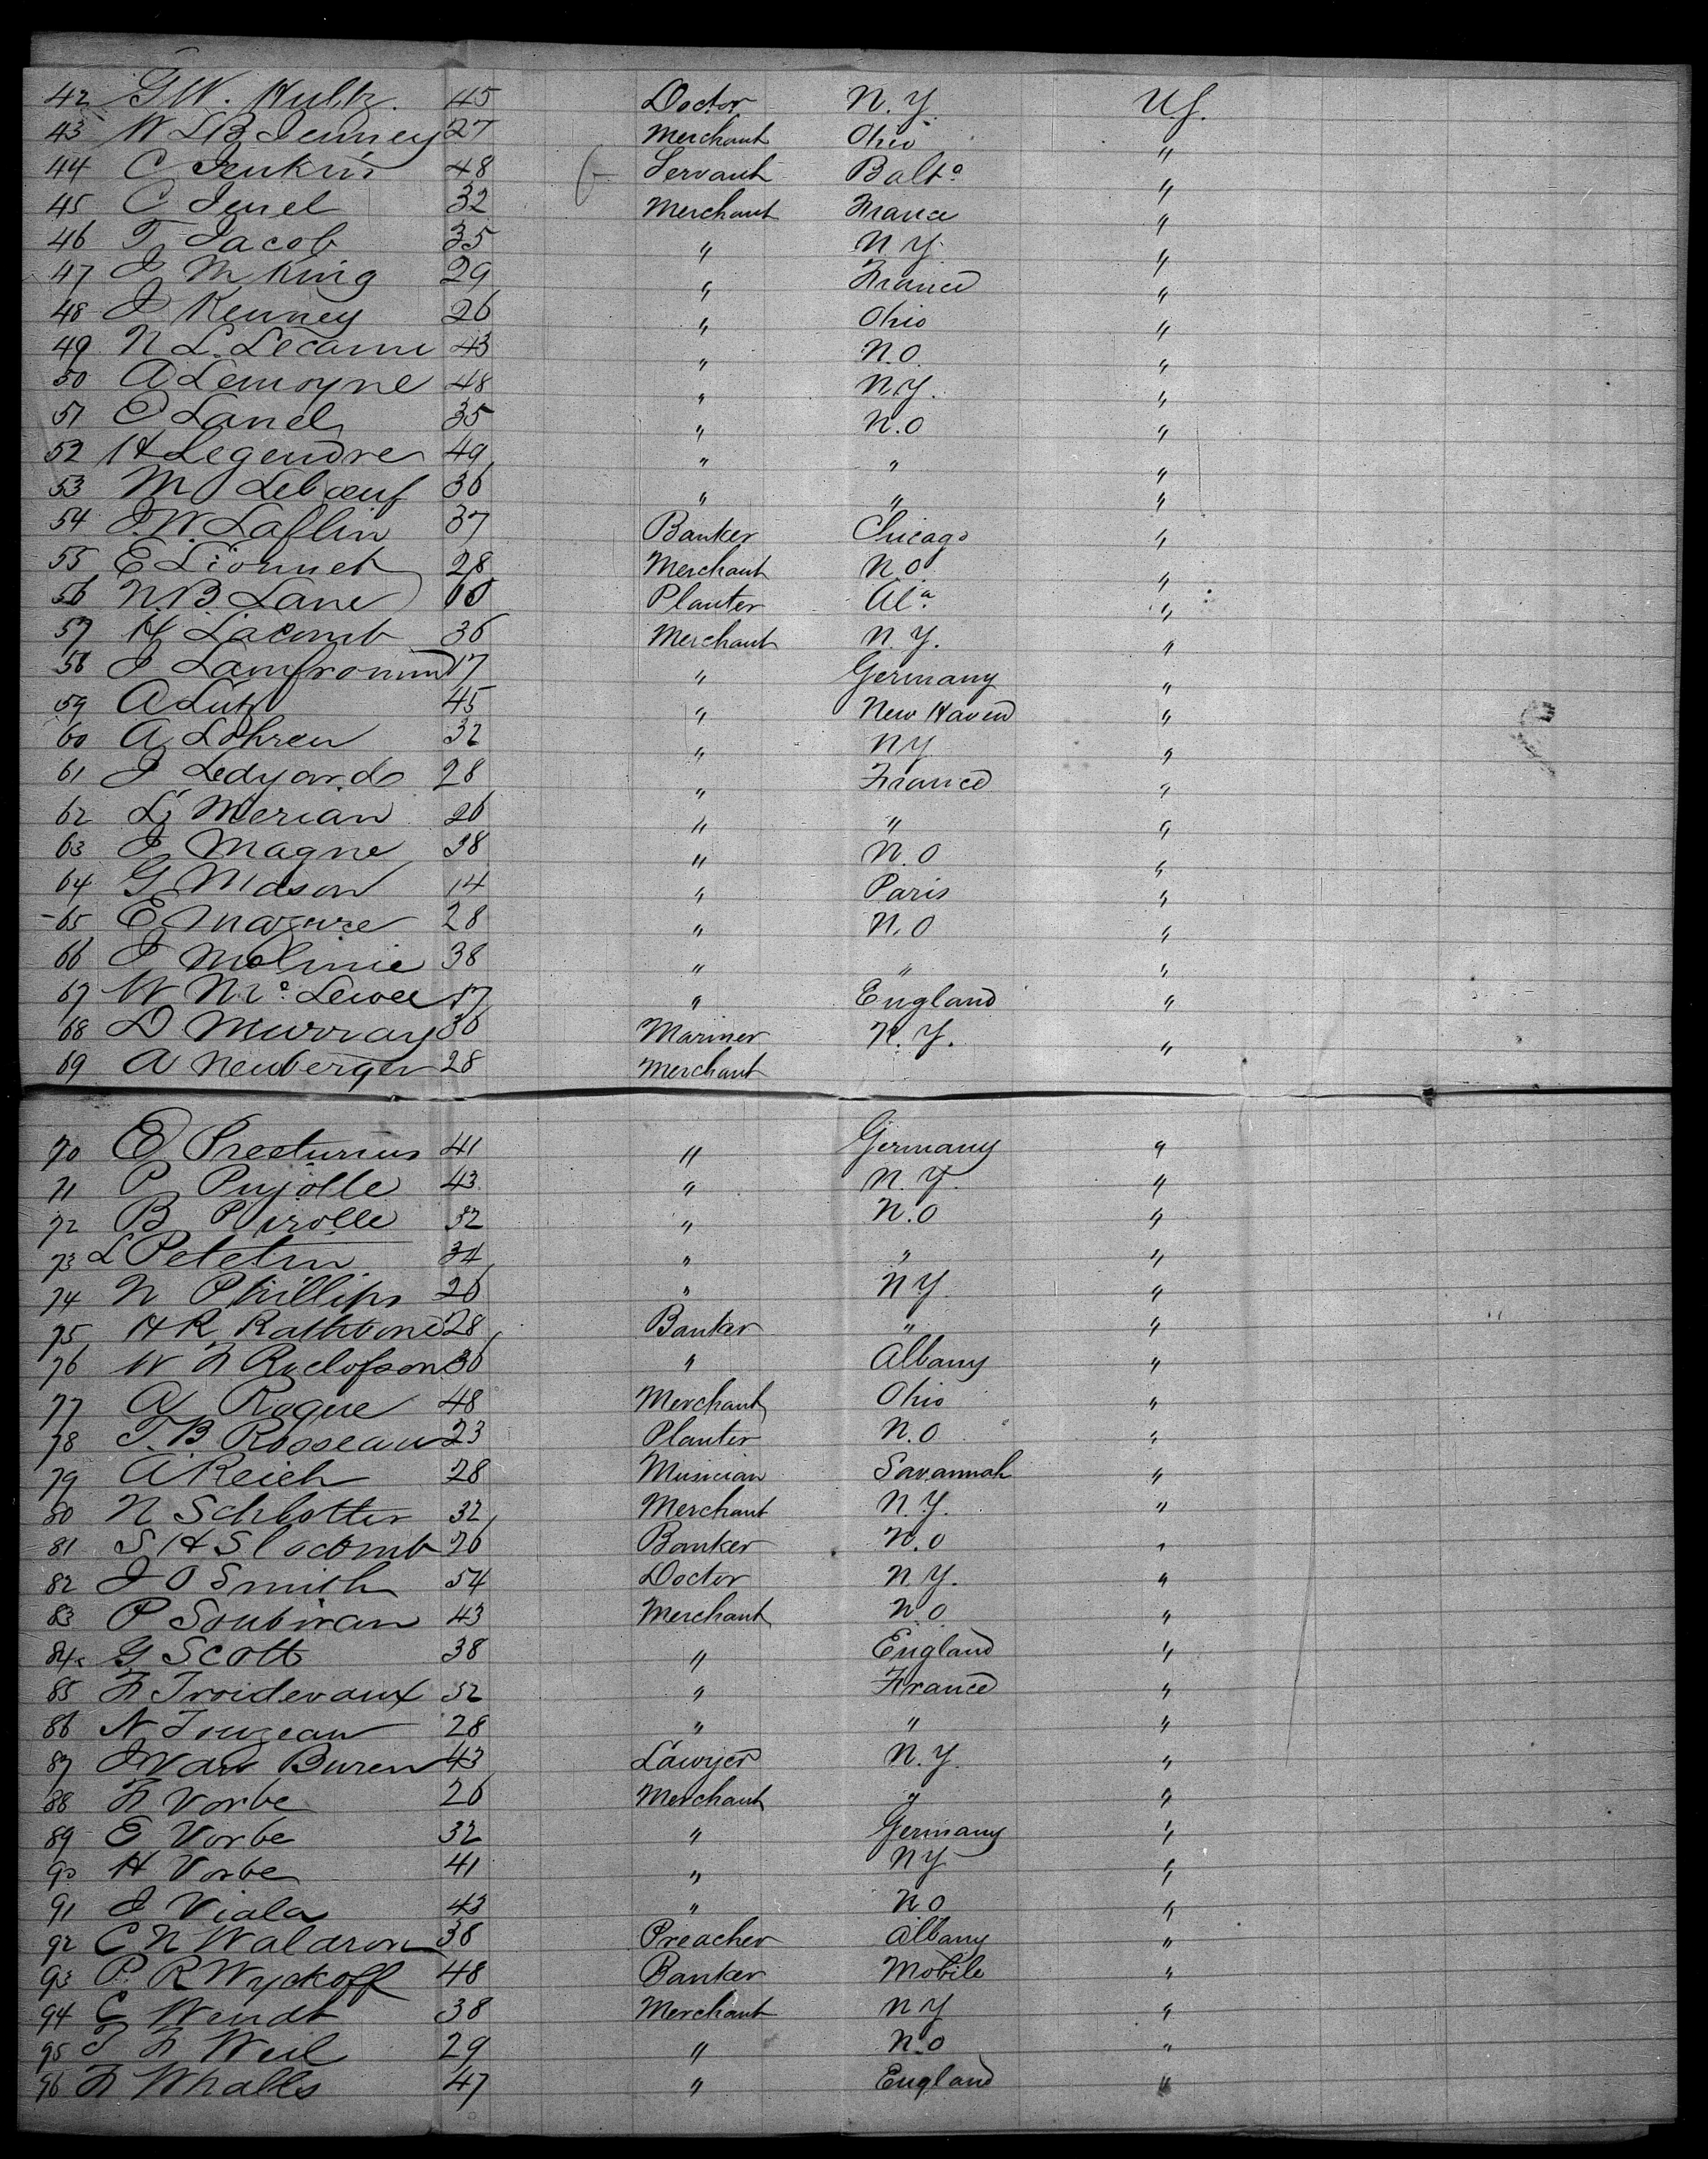 42 G W. Hultz. 45 Doctor N.Y. U.S.
43 W L B Jenney 27 Merchant Ohio "
44 C Jenkins 48 Servant Balto "
45 C Jeusel 32 Merchant France "
46 T Jacob 35 " N Y "
47 J M King 29 " France "
48 J Kenney 26 " Ohio "
49 N L. Lecanu 43 " N.O "
50 A Lemoyne 48 " N.Y. "
51 Lanel 35 " N.O "
52 H Legendre 49 " " "
53 M Leboeuf 36 " " "
54 J.W. Laflin 37 Banker Chicago "
55 E Lionnet 28 Merchant N O. "
56 N.B. Lane 60 Planter Ala "
57 H Lacomb 36 Merchant N.Y. "
58 J Lamfromm 17 " Germany "
59 A Lutz 45 " New Haven "
60 A Lohren 32 " N Y "
61 J Ledyard 28 " France "
62 L Merian 26 " " "
63 J Magne 28 " N.O "
64 G Mason 14 " Paris "
65 E Mazure 28 " N.O "
66 J Molinie 38 " " "
67 W Mc 17 " England "
68 D Murray 36 Mariner N.Y. "
69 A Newberger 28 Merchant
70 E Preeturius 41 " Germany "
71 P Pujolle 43 " N.Y. "
72 B Pirolle 32 " N.O "
73 L Petetin 34 " " "
74 N Phillips 26 " N Y "
75 H R Rathbone 28 Banker " "
76 W F Ruclofson 36 " Albany "
77 A Roque 48 Merchant Ohio "
78 T.B. Rosseau 23 Planter N.O "
79 A Reich 28 Musician Savannah "
80 N Schlotter 32 Merchant N.Y. "
81 S H Slocomb 26 Banker N.O "
82 J O Smith 54 Doctor N Y. "
83 P Soubiran 43 Merchant N.O "
84 G Scott 38 " England "
85 F Froidevaux 32 " France "
86 N Touzeau 28 " " "
87 J Van Buren 43 Lawyer N.Y. "
88 F Vorbe 26 Merchant " "
89 E Vorbe 32 " Germany "
90 H Vorbe 41 " N Y "
91 J Viala 43 " N O "
92 C N Waldron 36 Preacher Albany "
93 P. R Wyckoff 48 Banker Mobile "
94 C Wendt 38 Merchant N Y "
95 F Weil 29 " N.O "
96 F Whalls 47 " England "